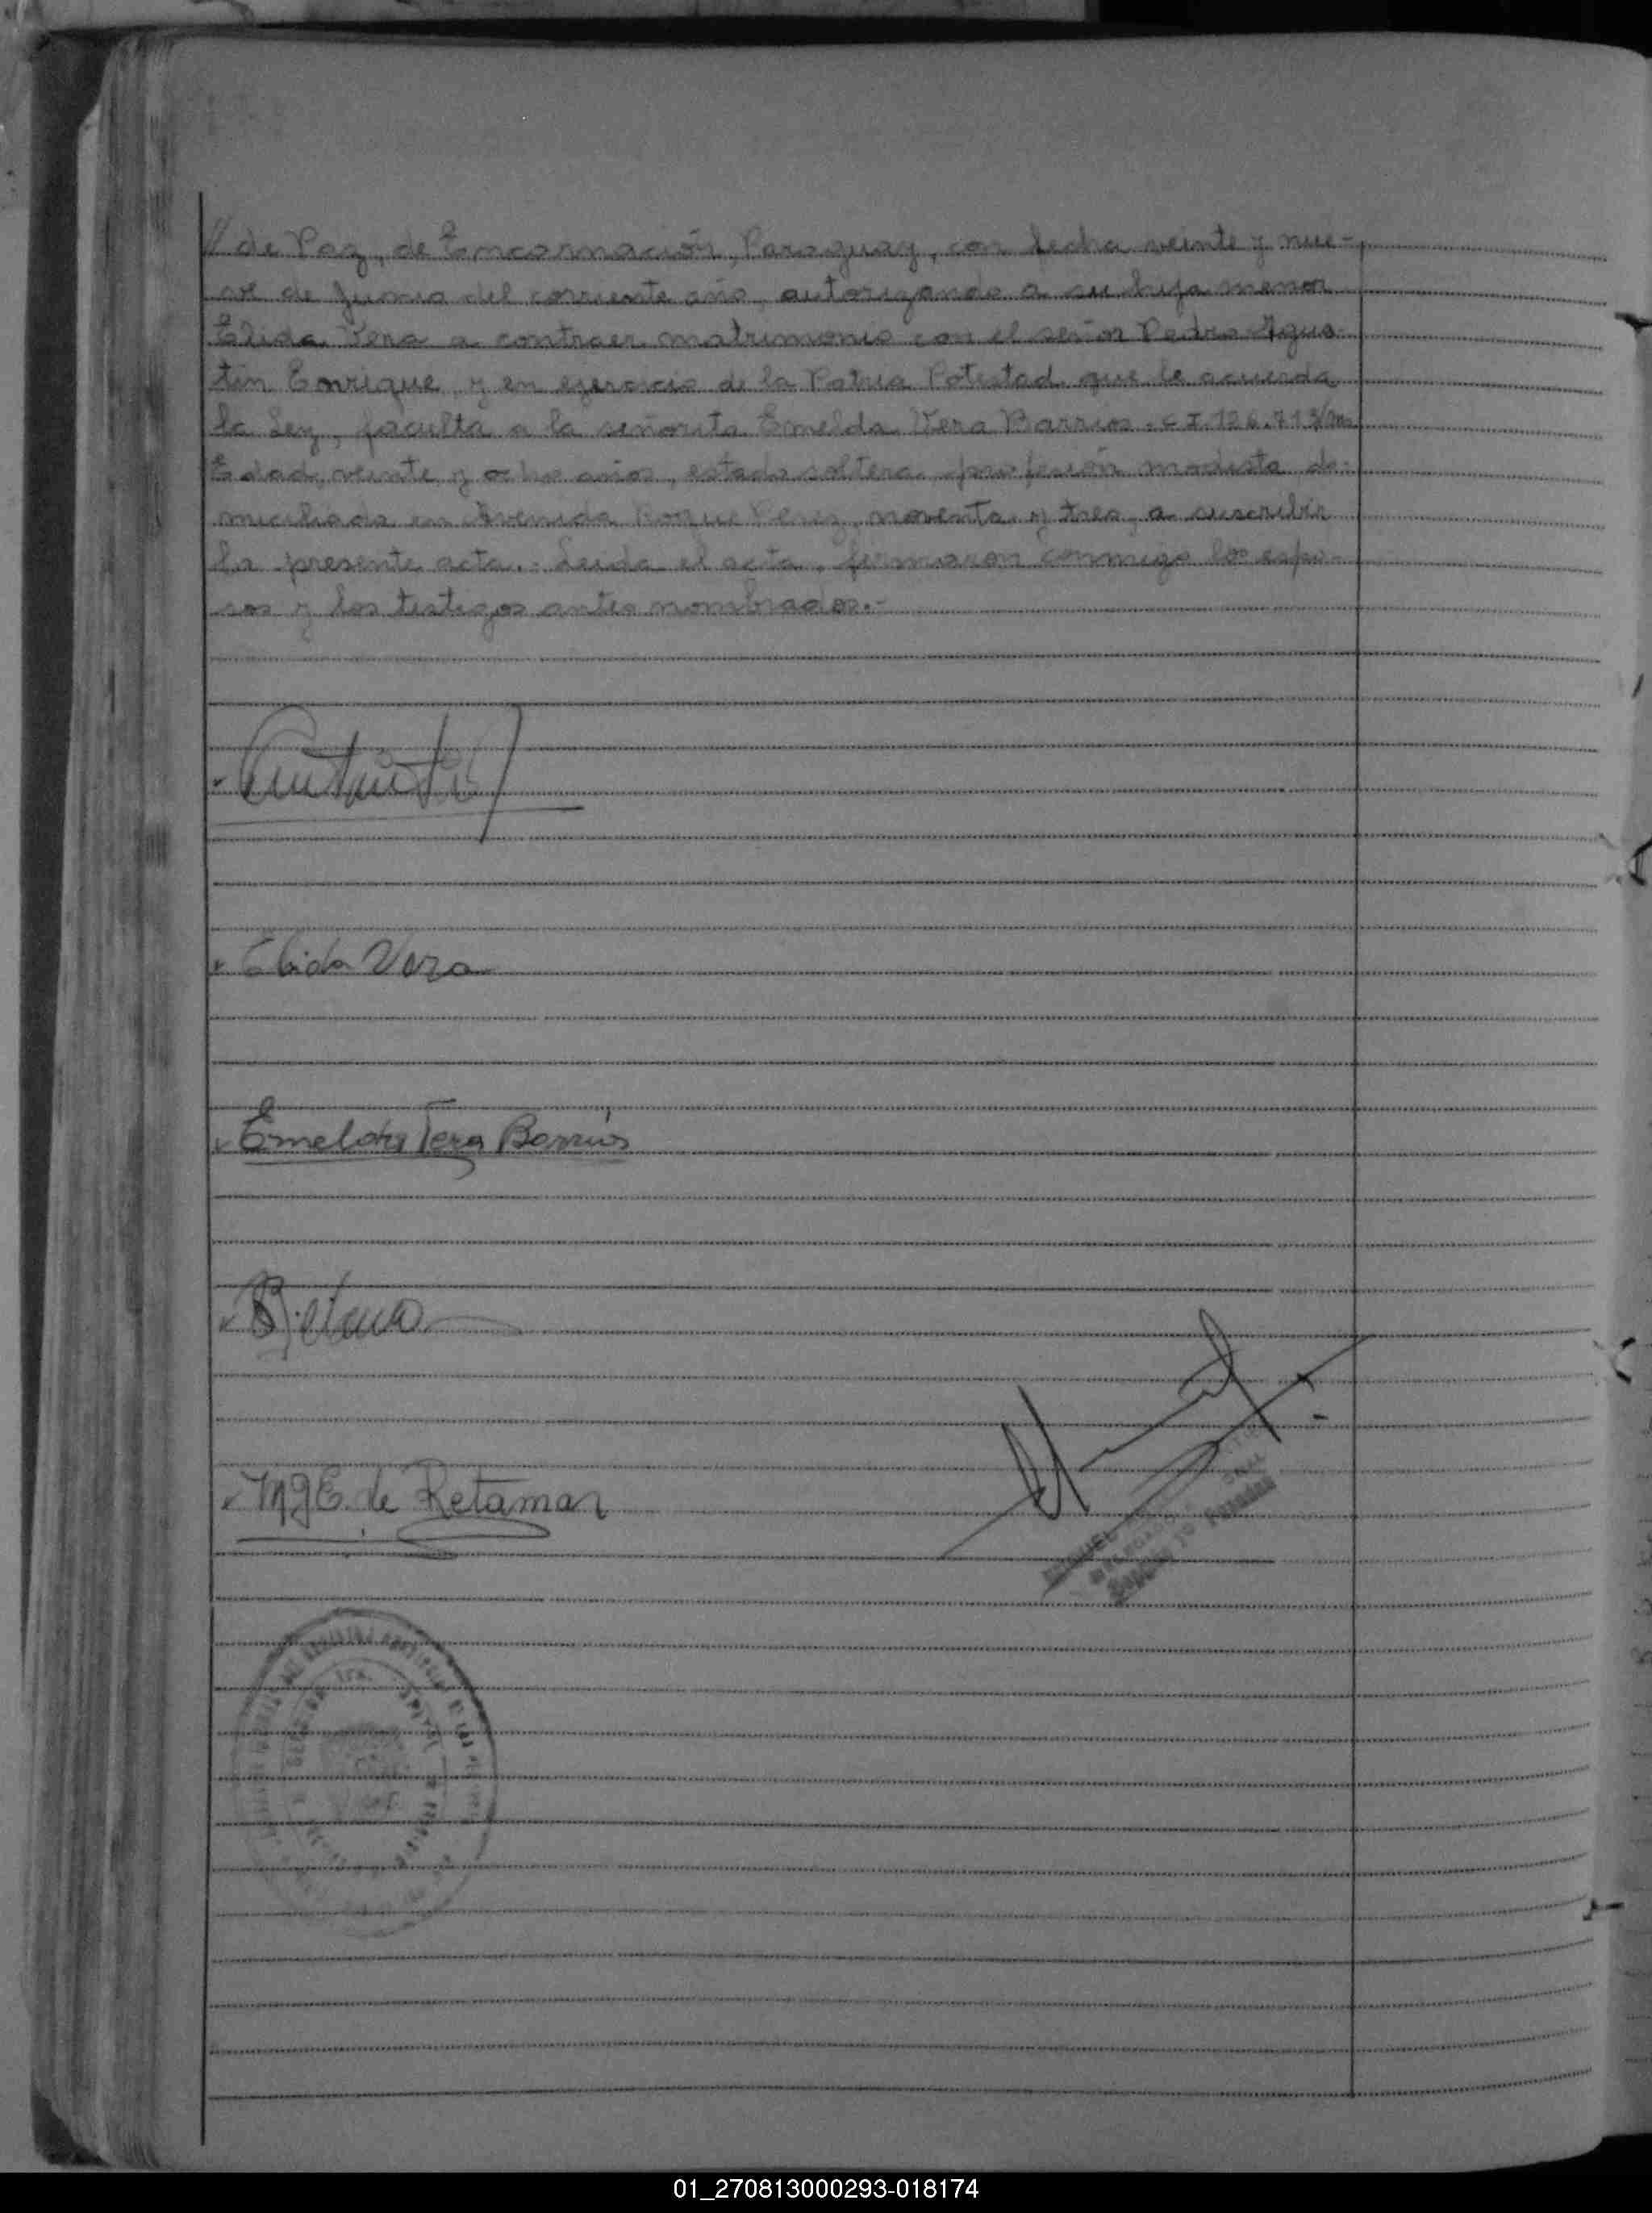 // de Paz, de Encarnación, Paraguay, con fecha veinte y nue-
ve de Junio del corriente año, autorizando a su hija menor
Elida Vera a contraer matrimonio con el señor Pedro Agus-
tin Enrique, y en ejercicio de la Patria Potestad que le acuerda
la Ley, faculta a la señorita Emelda Vera Barrios. C I. 126.713
Edad veinte y ocho años, estado soltera, profesión modista do-
miciliada en Avenida Roque Perez, noventa y tres, a suscribir
la presente acta.- Leida el acta, firmaron conmigo los espo-
sos y los testigos antes nombrados.-
Elida Vera
Emelda Vera Barrios
M J E. de Retamar
Posadas
01_270813000293-018174